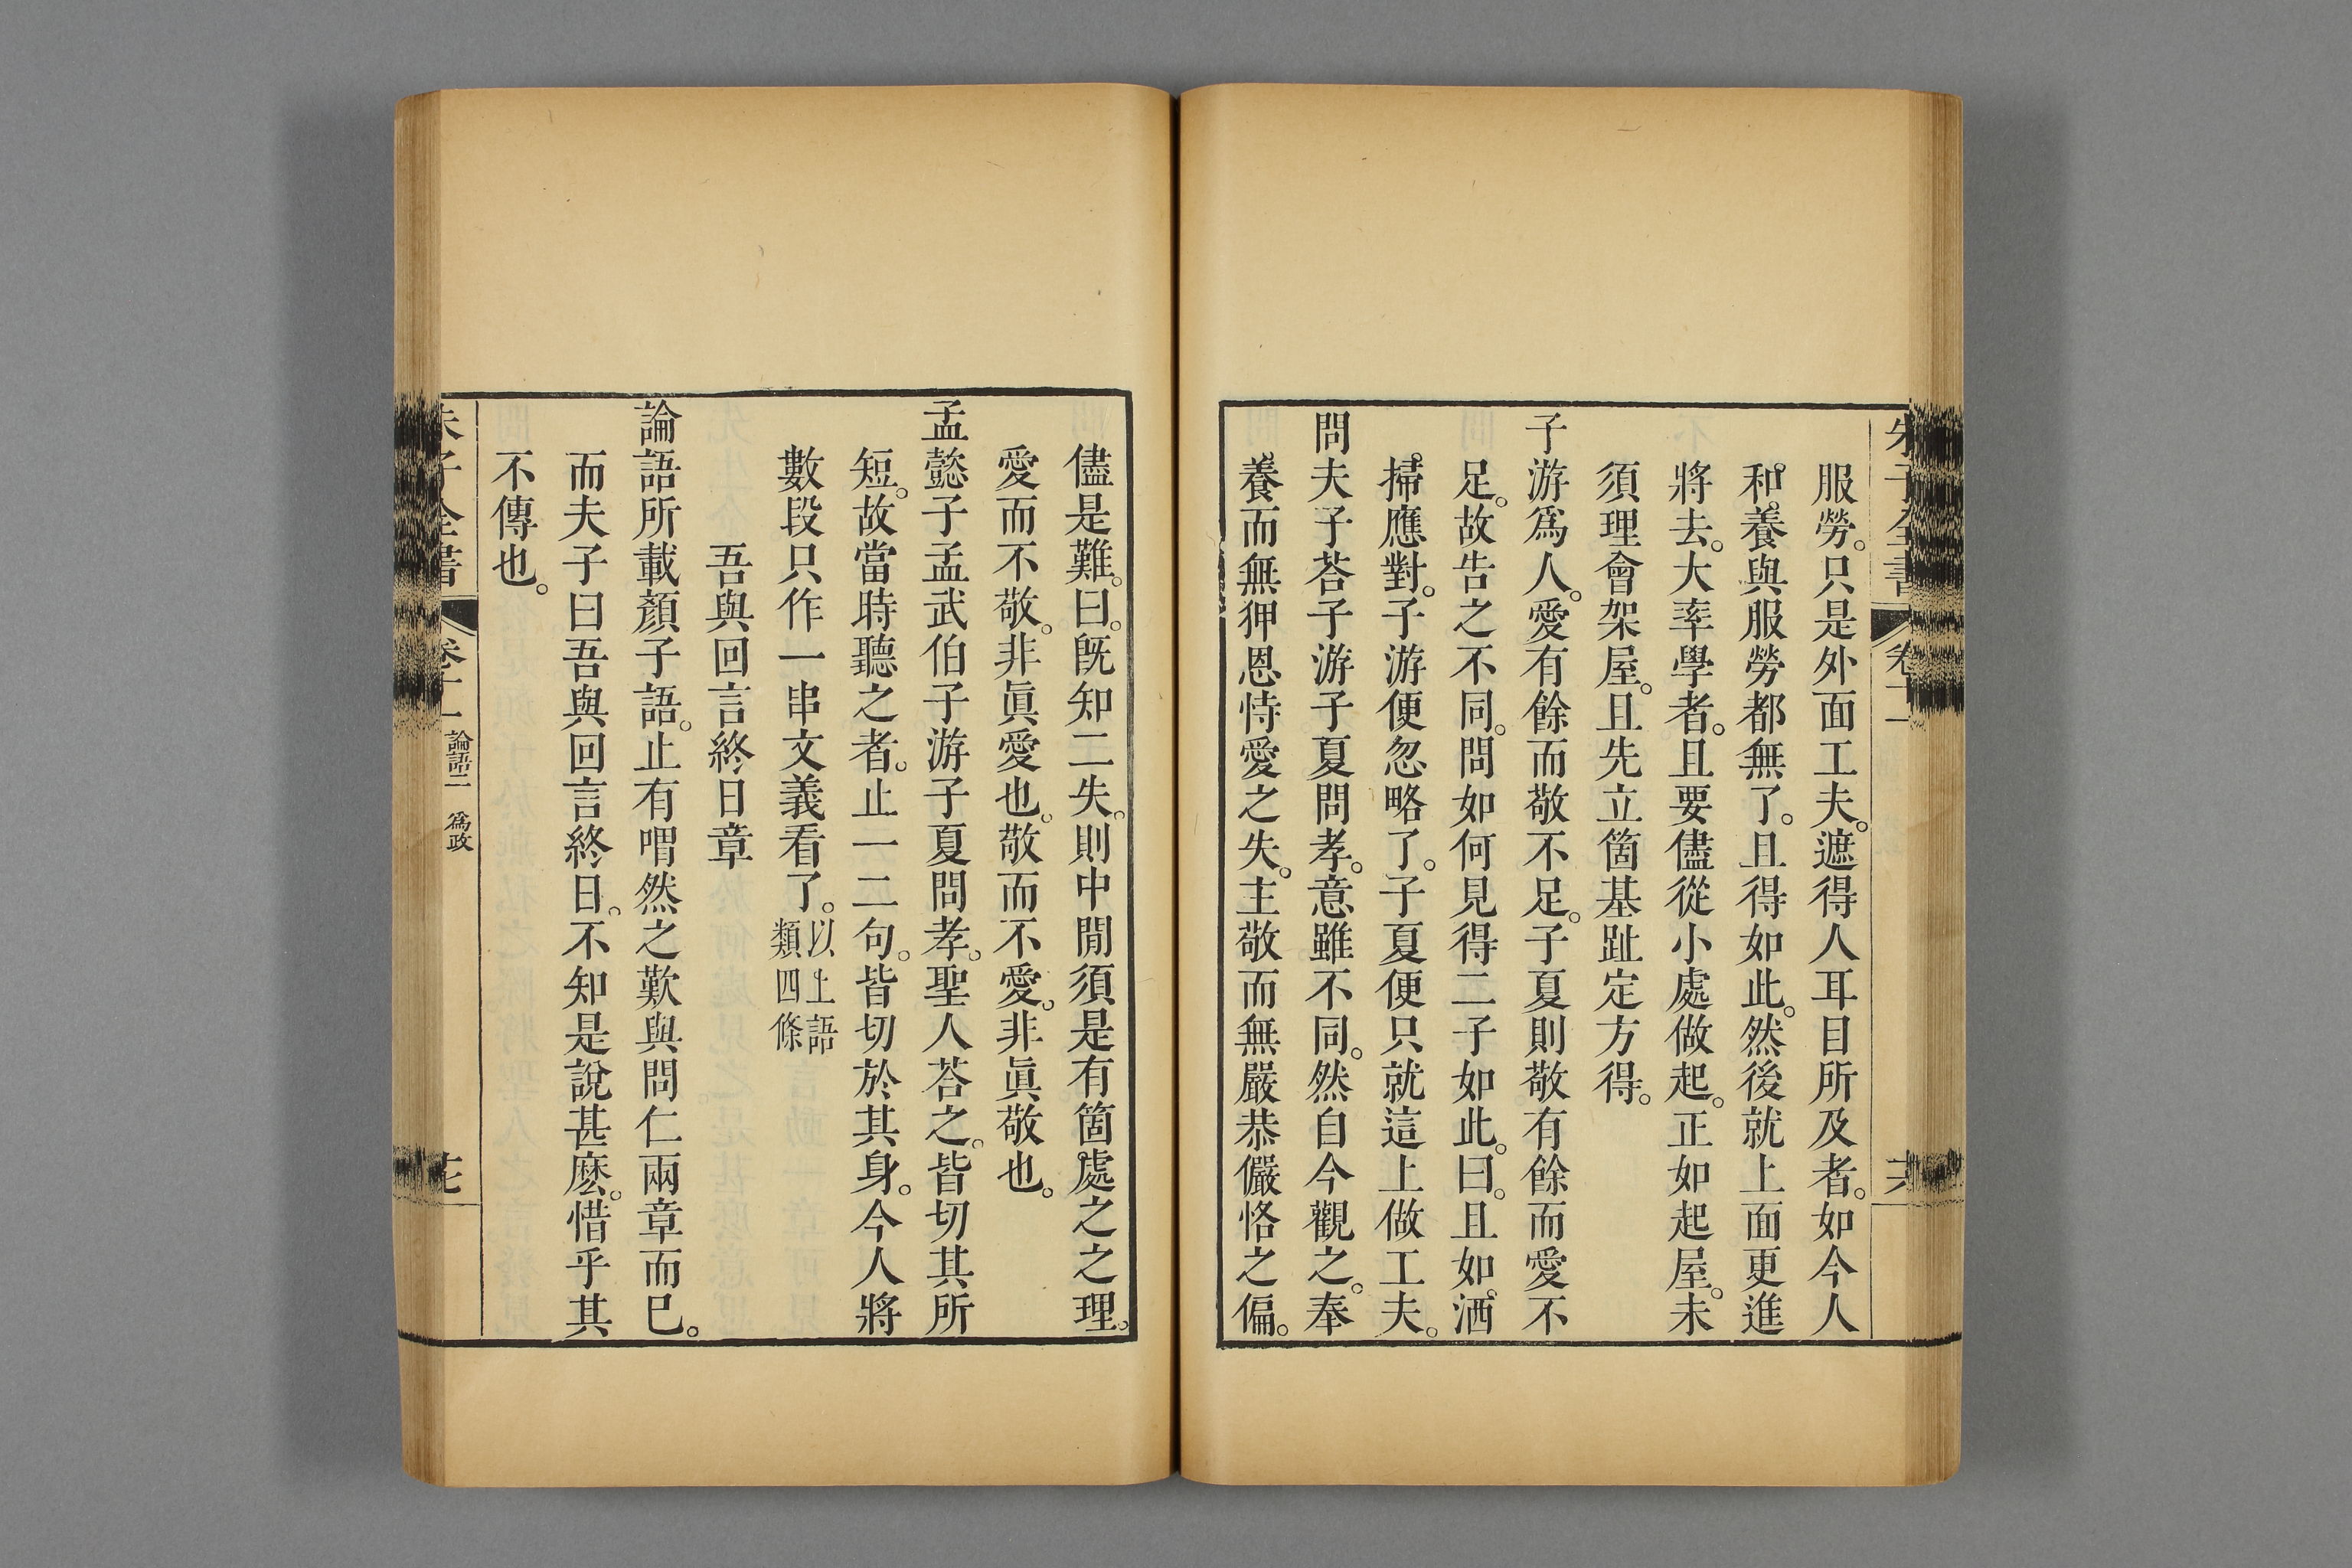 服勞。只是外面工夫。遮得人耳目所及者。如今人
和。養與服勞都無了。且得如此。然後就上面更進
將去。大率學者。且要儘從小處做起。正如起屋。未
須理會架屋。且先立箇基趾定方得。
子游爲人。愛有餘而敬不足。子夏則敬有餘而愛不
足。故告之不同。問如何見得二子如此。曰。且如。洒
掃。應對。子游便忽略了。子夏便只就這上做工夫。
問夫子荅子游子夏問孝。意雖不同。然自今觀之。奉
養而無狎恩恃愛之失。主敬而無嚴恭儼恪之偏。
儘是難。曰。旣知二失。則中閒須是有箇處之之理。
愛而不敬。非眞愛也。敬而不愛。非眞敬也。
孟懿子孟武伯子游子夏問孝。聖人荅之。皆切其所
短。故當時聽之者。止一二句。皆切於其身。今人將
數段只作一串文義看了。以上語類四條
吾與回言終日章
論語所載顏子語。止有喟然之歎與問仁兩章而已。
而夫子曰吾與回言終日。不知是說甚麽。惜乎其
不傳也。
朱子全書 卷十一 論語二 爲政